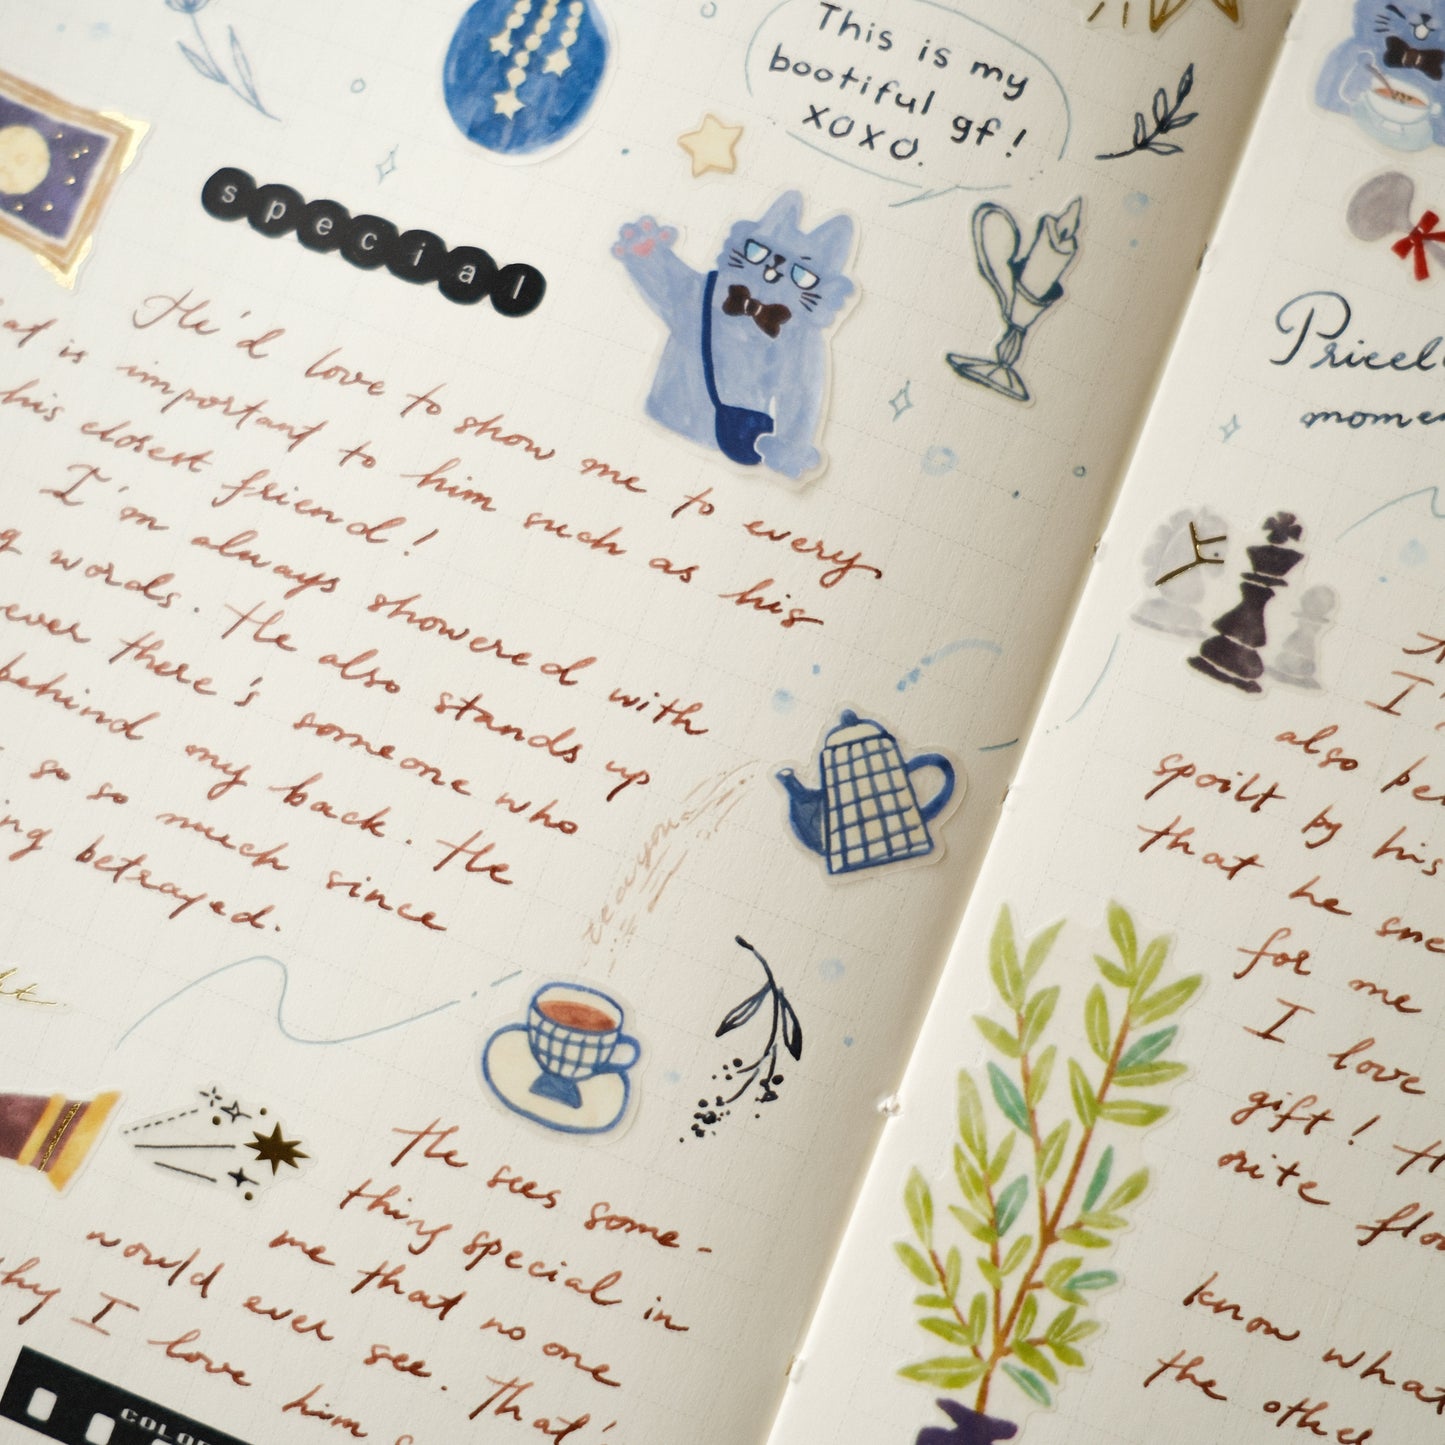 This is my
bootiful gf!
xoxo.
special
He'd love to show me to every
is important to him such as his
his closest friend!
I'm always showered with
words. He also stands up
ever there's someone who
behind my back. He
so so much since
ing betrayed.
He sees some-
thing special in
me that no one
would ever see. That's
I love him
COLOR
moments
I
also
spoilt by his
that he
for me
I love
gift!
know what
the other